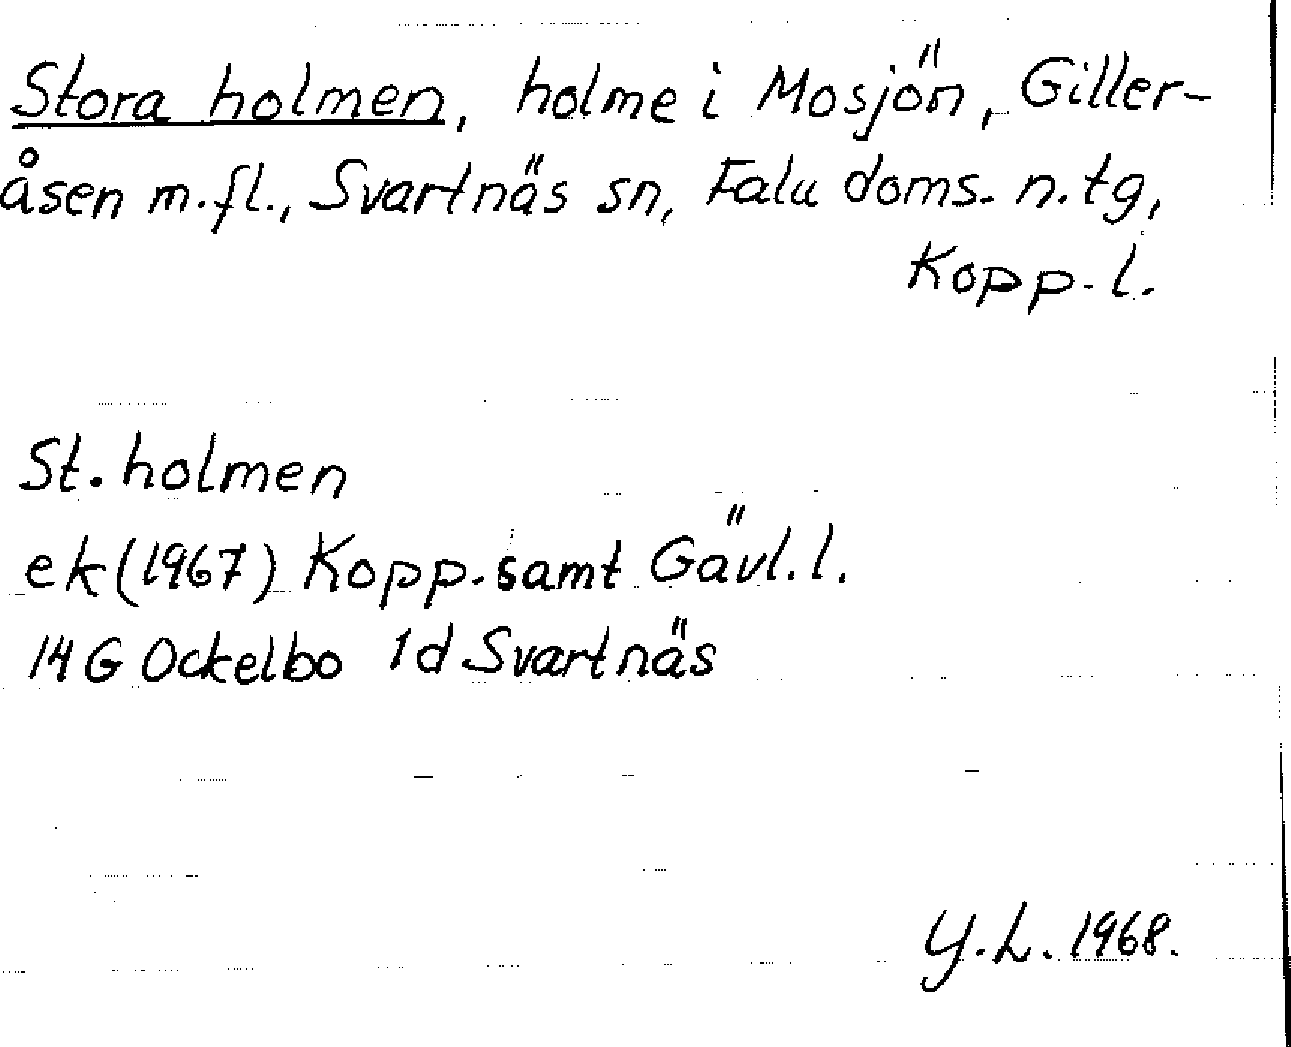 Stora holmen, holme i Mosjön, Giller-
åsen m.fl., Svartnäs sn, Falu doms. n. tg,
Kopp. l.
St. holmen
ek (1967) Kopp. samt Gävl. l.
14G Ockelbo 1d Svartnäs
Y.L. 1968.